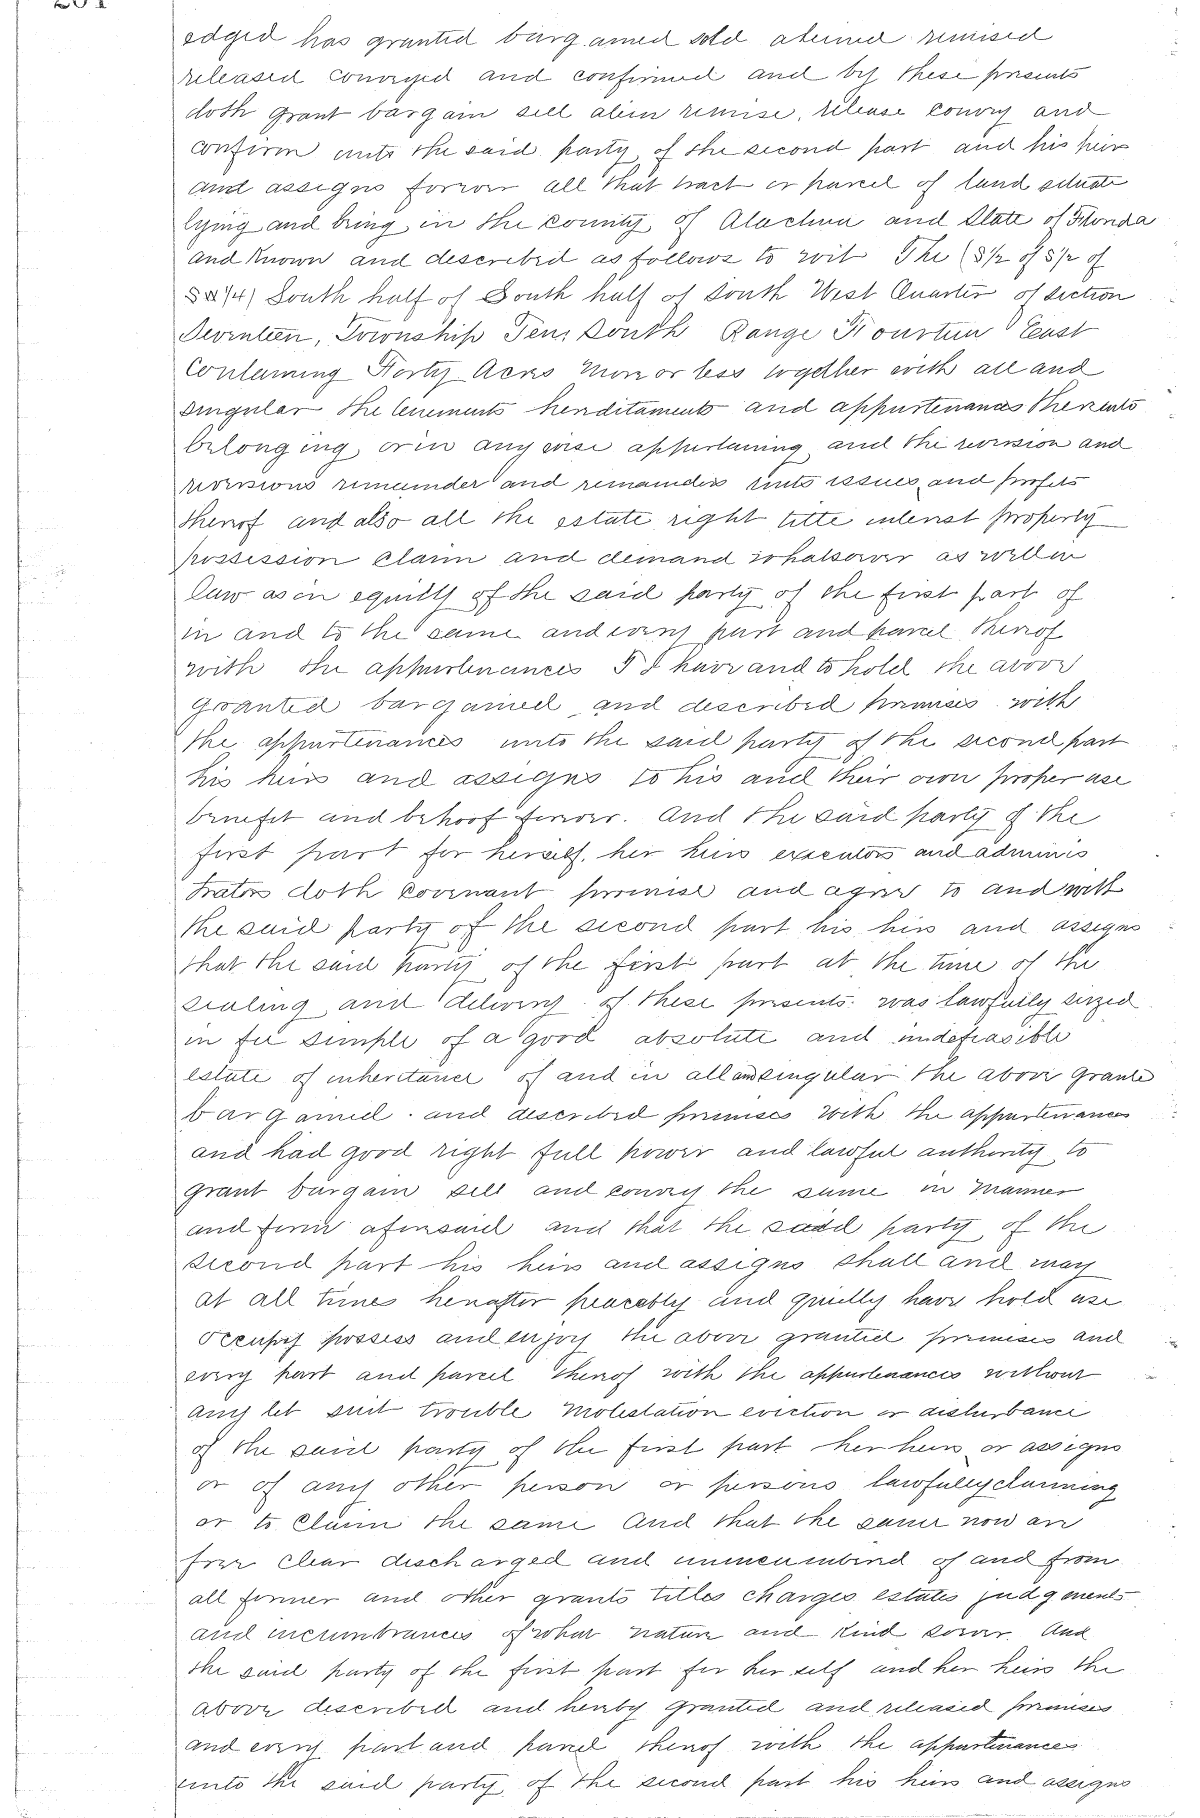 edged has granted bargained sold aliened remised
released conveyed and confirmed and by these presents
doth grant bargain sell alien remise, release convey and
confirm unto the said party of the second part and his heirs
and assigns forever all that tract or parcel of land situate
lying and being in the county of Alachua and State of Florida
and Known and described as follows to wit The (S 1/2 of S 1/2 of
1/4) South half of South half of South West Quarter of Section
Seventeen, Township Ten, South Range Fourteen East
Containing Forty Acres More or less together with all and
singular the tenements hereditaments and appurtenances thereunto
belonging or in any wise appertaining and the reversion and
reversions remainder and remainders rents issues and profits
thereof and also all the estate right title interest property
possession claim and demand whatsoever as well in
law as in equitty of the said party of the first part of
in and to the same and every part and parcel thereof
with the appurtenances To have and to hold the above
granted bargained and described premises with
the appurtenances unto the said party of the second part
his heirs and assigns to his and their own proper use
benefit and behoof forever. And the said party of the
first part for herself, her heirs executors and adminis
trators doth Covenant promise and agree to and with
the said party of the second part his heirs and assigns
that the said party of the first part at the time of the
sealing and delivery of these presents was lawfully siezed
in fee simple of a good absolute and indefeasible
estate of inheritance of and in all and singular the above grante
bargained and described premises with the appurtenances
and had good right full power and lawful authority to
grant bargain sell and convey the same in manner
and form aforesaid and that the said party of the
second part his heirs and assigns shall and may
at all times hereafter peaceably and quietly have hold use
occupy possess and enjoy the above granted premises and
every part and parcel thereof with the appurtenances without
any let suit trouble Molestation eviction or disturbance
of the said party of the first part her heirs or assigns
or of any other person or persons lawfully claiming
or to Claim the same And that the same now are
free clear discharged and unincumbered of and from
all former and other grants titles charges estates judgments
and incumbrances of what nature and Kind soever. And
the said party of the first part for her self and her heirs the
above described and hereby granted and released premises
and every part and parcel thereof with the appurtenances
unto the said party of the second part his heirs and assigns